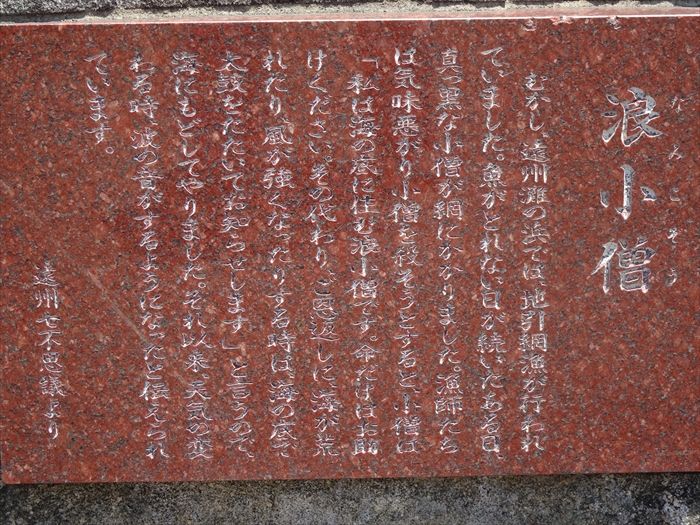 なみこぞう
浪小僧
むかし、遠州灘の浜では、地引網漁が行われ
ていました。魚がとれない日が続いたある日、
真っ黒な小僧が網にかかりました。漁師たち
は気味悪がり小僧を殺そうとすると、小僧は
「私は海の底に住む浪小僧です。命だけはお助
けください。その代わり、ご恩返しに、海が荒
れたり、風が強くなったりする時は、海の底で
太鼓をたたいてお知らせします」と言うので、
海にもどしてやりました。それ以来、天気の変
わる時、波の音がするようになったと伝えられ
ています。
遠州七不思議より